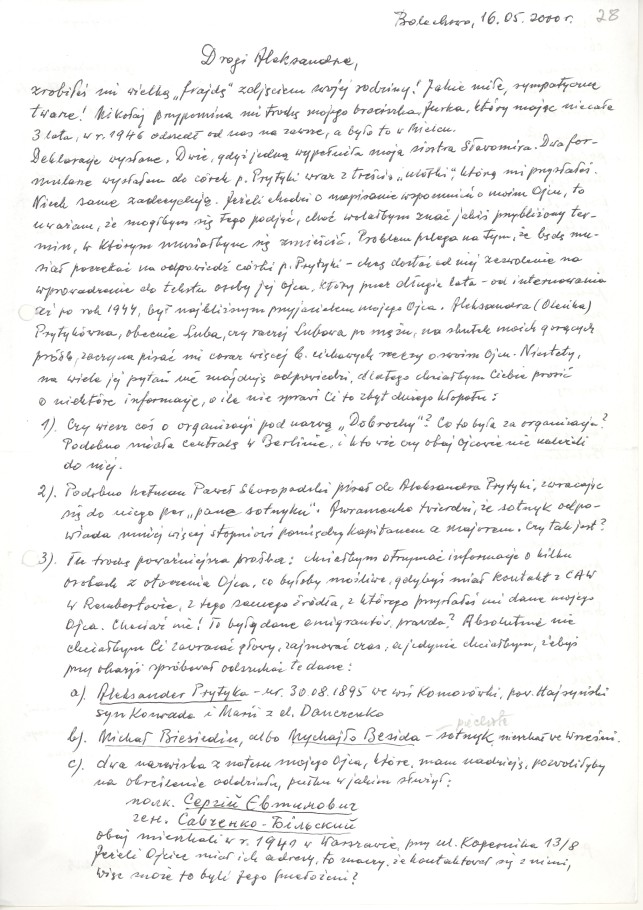 Bolechowo, 16.05.2000 r. 28
Drogi Aleksandrze,
zrobiłeś mi wielką „frajdę" zdjęciem swojej rodziny! Jakie miłe, sympatyczne
twarze! Nikołaj przypomina mi trochę mojego braciszka Jurka, który mając niecałe
3 lata, w r. 1946 odszedł od nas na zawsze, a było to w Mielcu.
Deklaracje wysłane. Dwie, gdyż jedną wypełniła moja siostra Sławomira. Dwa for-
mularze wysłałem do córek p. Prytyki wraz z treścią „ulotki" którą mi przysłałeś.
Niech same zadecydują. Jeżeli chodzi o napisanie wspomnień o moim Ojcu, to
uważam, że mógłbym się tego podjąć, choć wolałbym znać jakiś przybliżony ter-
min, w którym musiałbym się zmieścić. Problem polega na tym, że będę mu-
siał poczekać na odpowiedź córki p. Prytyki - chcę dostać od niej zezwolenie na
wprowadzenie do tekstu osoby jej ojca, który przez długie lata - od internowania
aż po rok 1944, był najbliższym przyjacielem mojego Ojca. Aleksandra (Oleńka)
Prytykówna, obecnie Luba, czy raczej Lubowa po mężu, na skutek moich gorących
próśb, zaczyna pisać mi coraz więcej b. ciekawych rzeczy o swoim Ojcu. Niestety,
na wiele jej pytań nie znajduję odpowiedzi, dlatego chciałbym Ciebie prosić
o niektóre informacje, o ile nie sprawi Ci to zbyt dużego kłopotu:
1). Czy wiesz coś o organizacji pod nazwą „Dobrochy"? Co to była za organizacja?
Podobno miała centralę w Berlinie, i kto wie czy obaj Ojcowie nie należeli
do niej.
2). Podobno hetman Paweł Skoropadski pisał do Aleksandra Prytyki, zwracając
się do niego per „pane sotnyku". Awramenko twierdzi, że sotnyk odpo-
wiada mniej więcej stopniowi pomiędzy kapitanem a majorem. Czy tak jest?
3). Tu trochę poważniejsza prośba: chciałbym otrzymać informacje o kilku
osobach z otoczenia Ojca, co byłoby możliwe, gdybyś miał kontakt z CAW
w Rembertowie, z tego samego źródła, z którego przysłałeś mi dane mojego
Ojca. Chociaż nie! To były dane emigrantów, prawda? Absolutnie nie
chciałbym Ci zawracać głowy, zajmować czas, a jedynie chciałbym, żebyś
przy okazji spróbował odszukać te dane:
a). Aleksander Prytyka - ur. 30.08.1895 we wsi Komarówki, pow. Hajsyński
syn Konrada i Marii z d. Danczenko
piechoty
b). Michał Biesiedin, albo Mychajło Besida - sotnyk, mieszkał we Wrześni.
c). dwa nazwiska z notesu mojego Ojca, które, mam nadzieję, pozwoliłyby
na określenie oddziału, pułku w jakim służył:
полк. Сергій Євтимович
ген. Савченко-Більский
obaj mieszkali w r. 1941 w Warszawie, przy ul. Kopernika 13/8
Jeżeli Ojciec miał ich adresy, to znaczy, że kontaktował się z nimi,
więc może to byli Jego przełożeni?